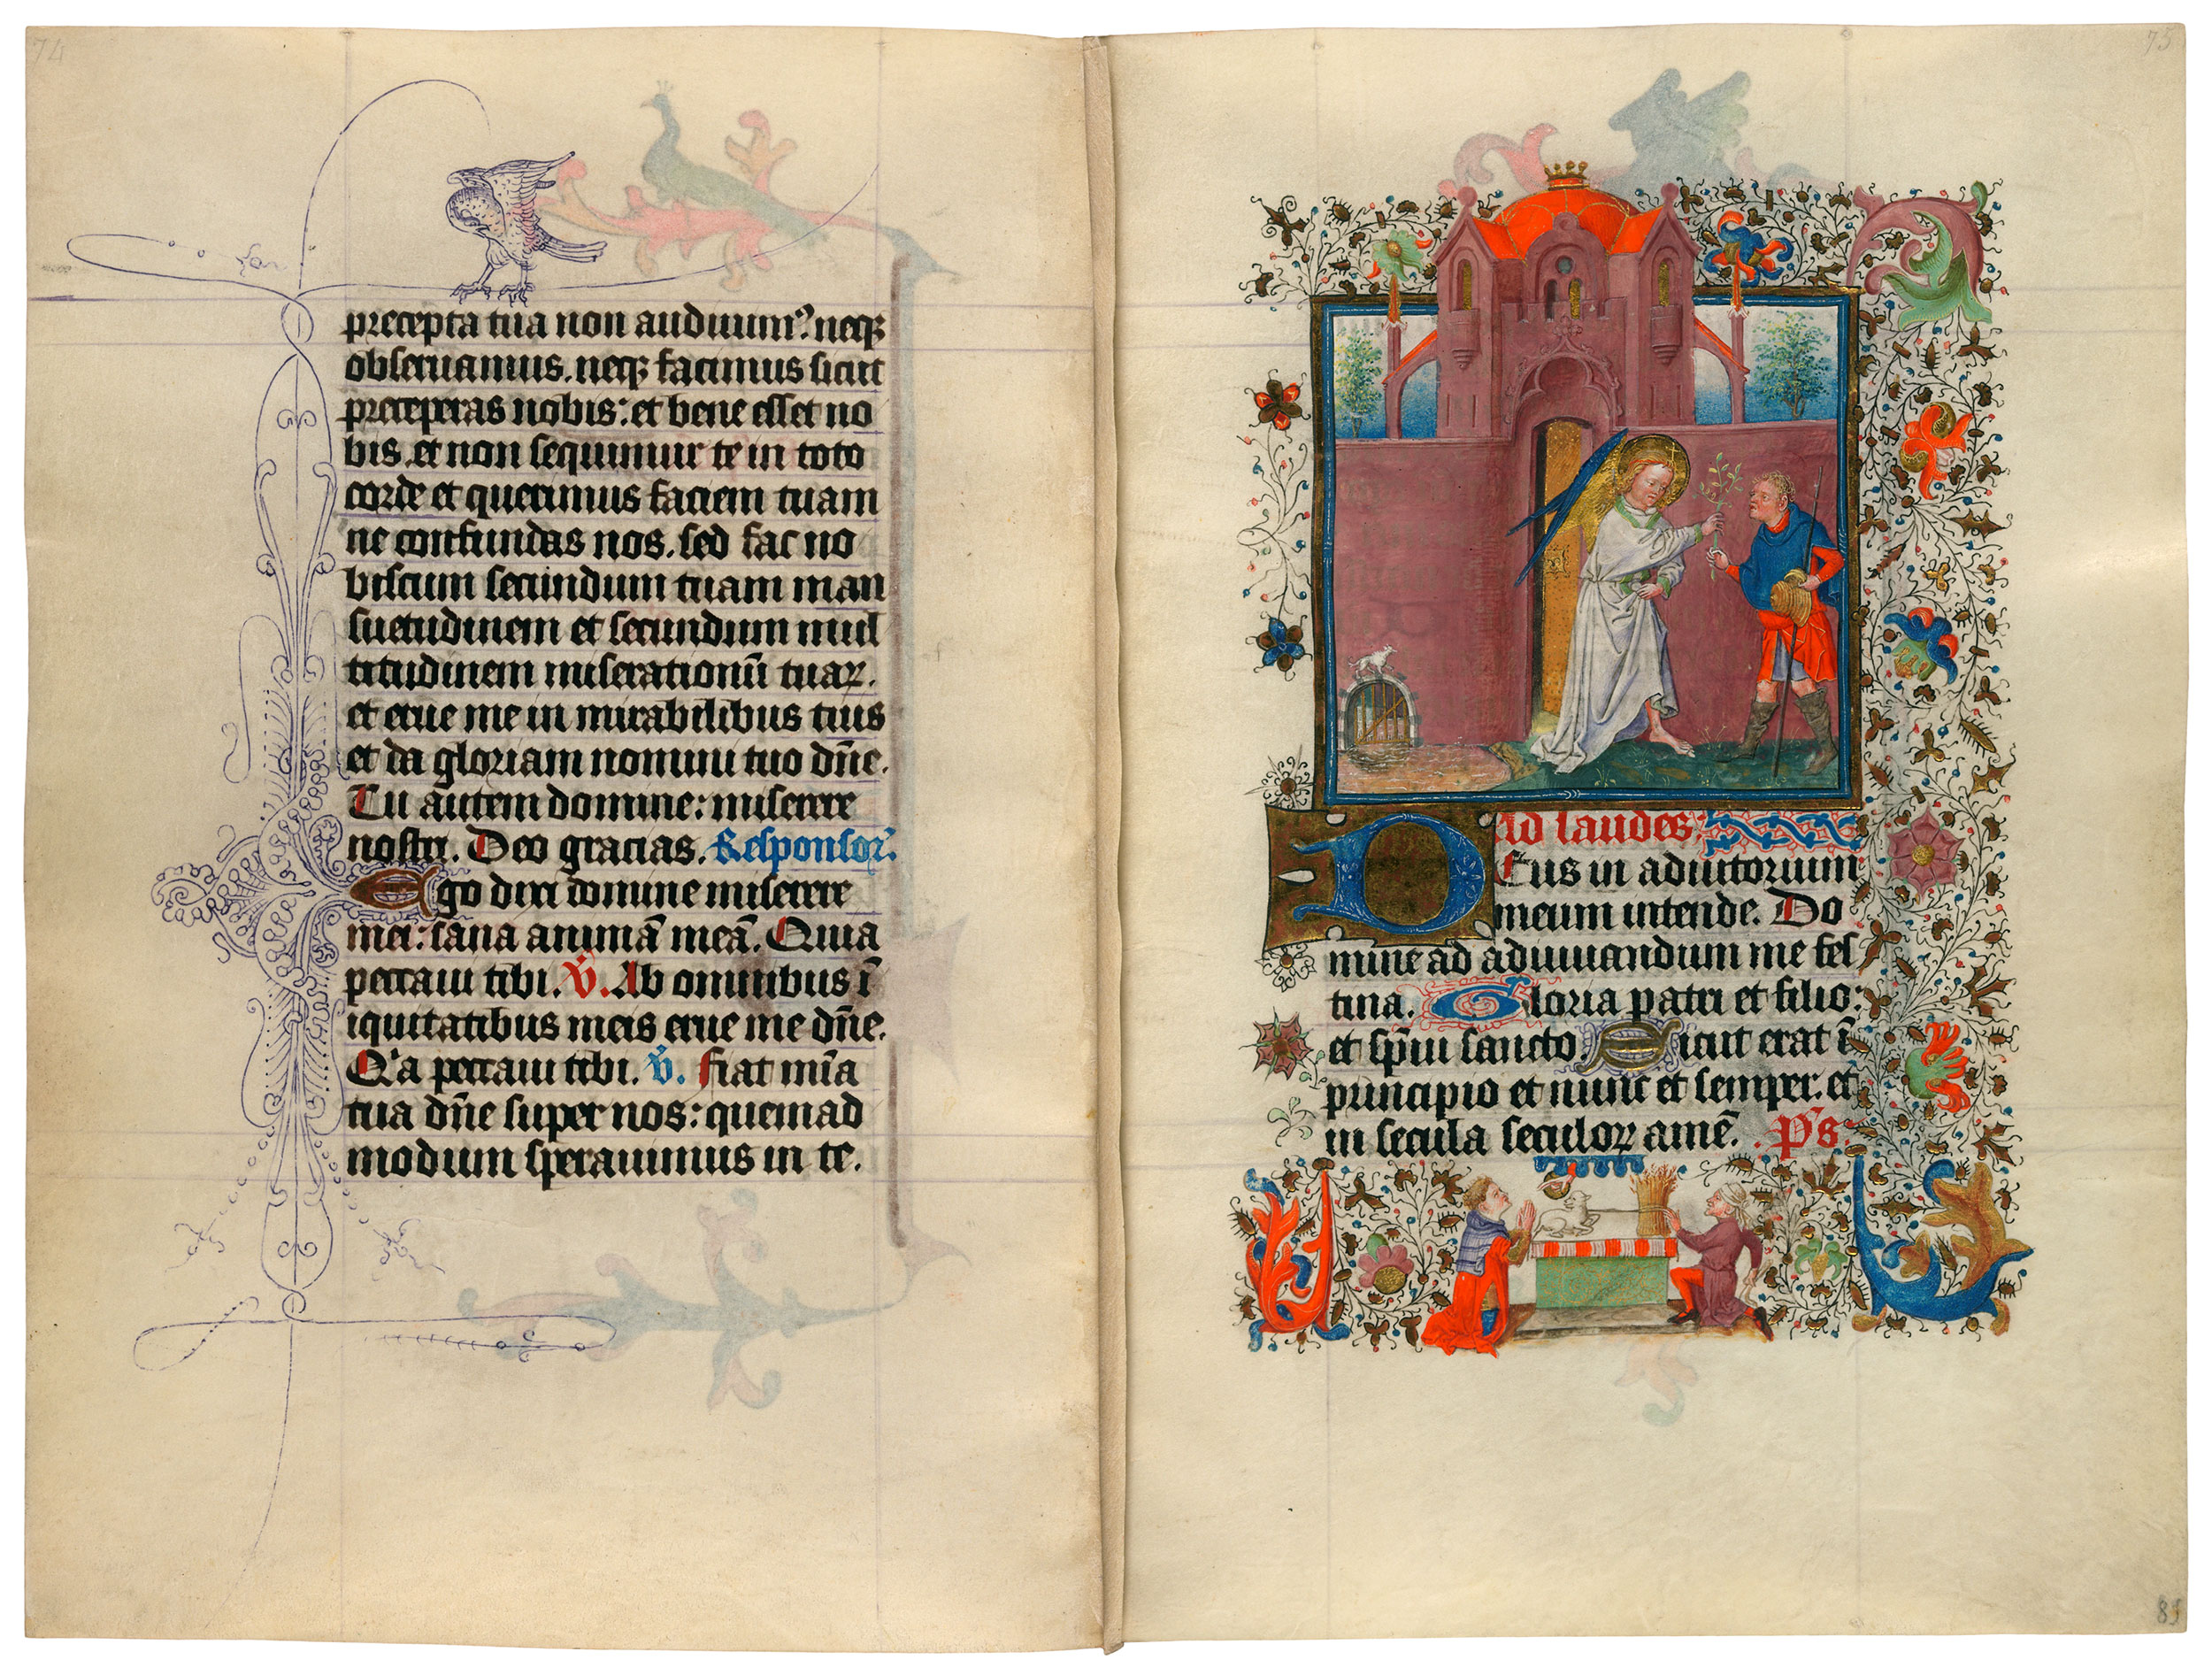 74
precepta tua non audiuim⁹. neqꝫ
obseruamus. neqꝫ facimus sicut
preceperas nobis: et bene esset no
bis. et non sequimur te in toto
corde et querimus faciem tuam
ne confundas nos. sed fac no
biscum secundum tuam man
suetudinem et secundum mul
titudinem miserationū tuaꝝ.
et erue me in mirabilibus tuis
et da gloriam nomini tuo dn̄e.
Tu autem domine: miserere
nostri. Deo gracias. Responsoꝛ̉.
Ego dixi domine miserere
mei: sana animā meā. Quia
peccaui tibi. V̉. Ab omnibus ī
iquitatibus meis erue me dn̄e.
Qͥa peccaui tibi. V̉. Fiat mīa
tua dn̄e super nos: quemad
modum sperauimus in te.
75
Ad laudes.
Deus in adiutorium
meum intende. Do
mine ad adiuuandum me fes
tina. Gloria patri et filio:
et sp̄ui sancto. Sicut erat ī
principio et nunc et semper. et
in secula seculoꝝ amē. Pˢs.
85